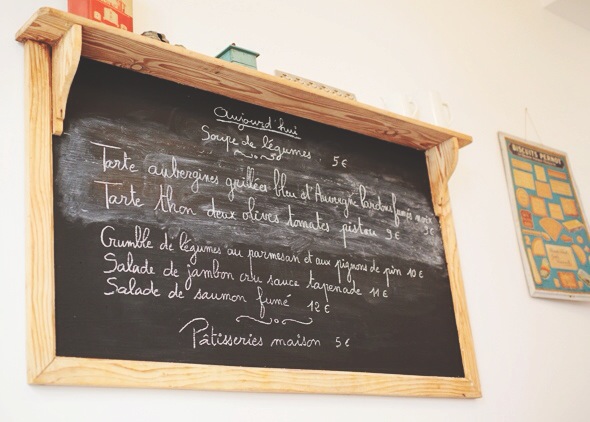 Aujourd'hui
Soupe de légumes. 5€
Tarte aubergines grillées bleu d'Auvergne lardons fumés noix 9€
Tarte thon deux olives tomates pistou 9€
Crumble de légumes au parmesan et aux pignons de pin 10€
Salade de jambon cru sauce tapenade 11€
Salade de saumon fumé 12€
Pâtisseries maison 5€
BISCUITS PERNOT